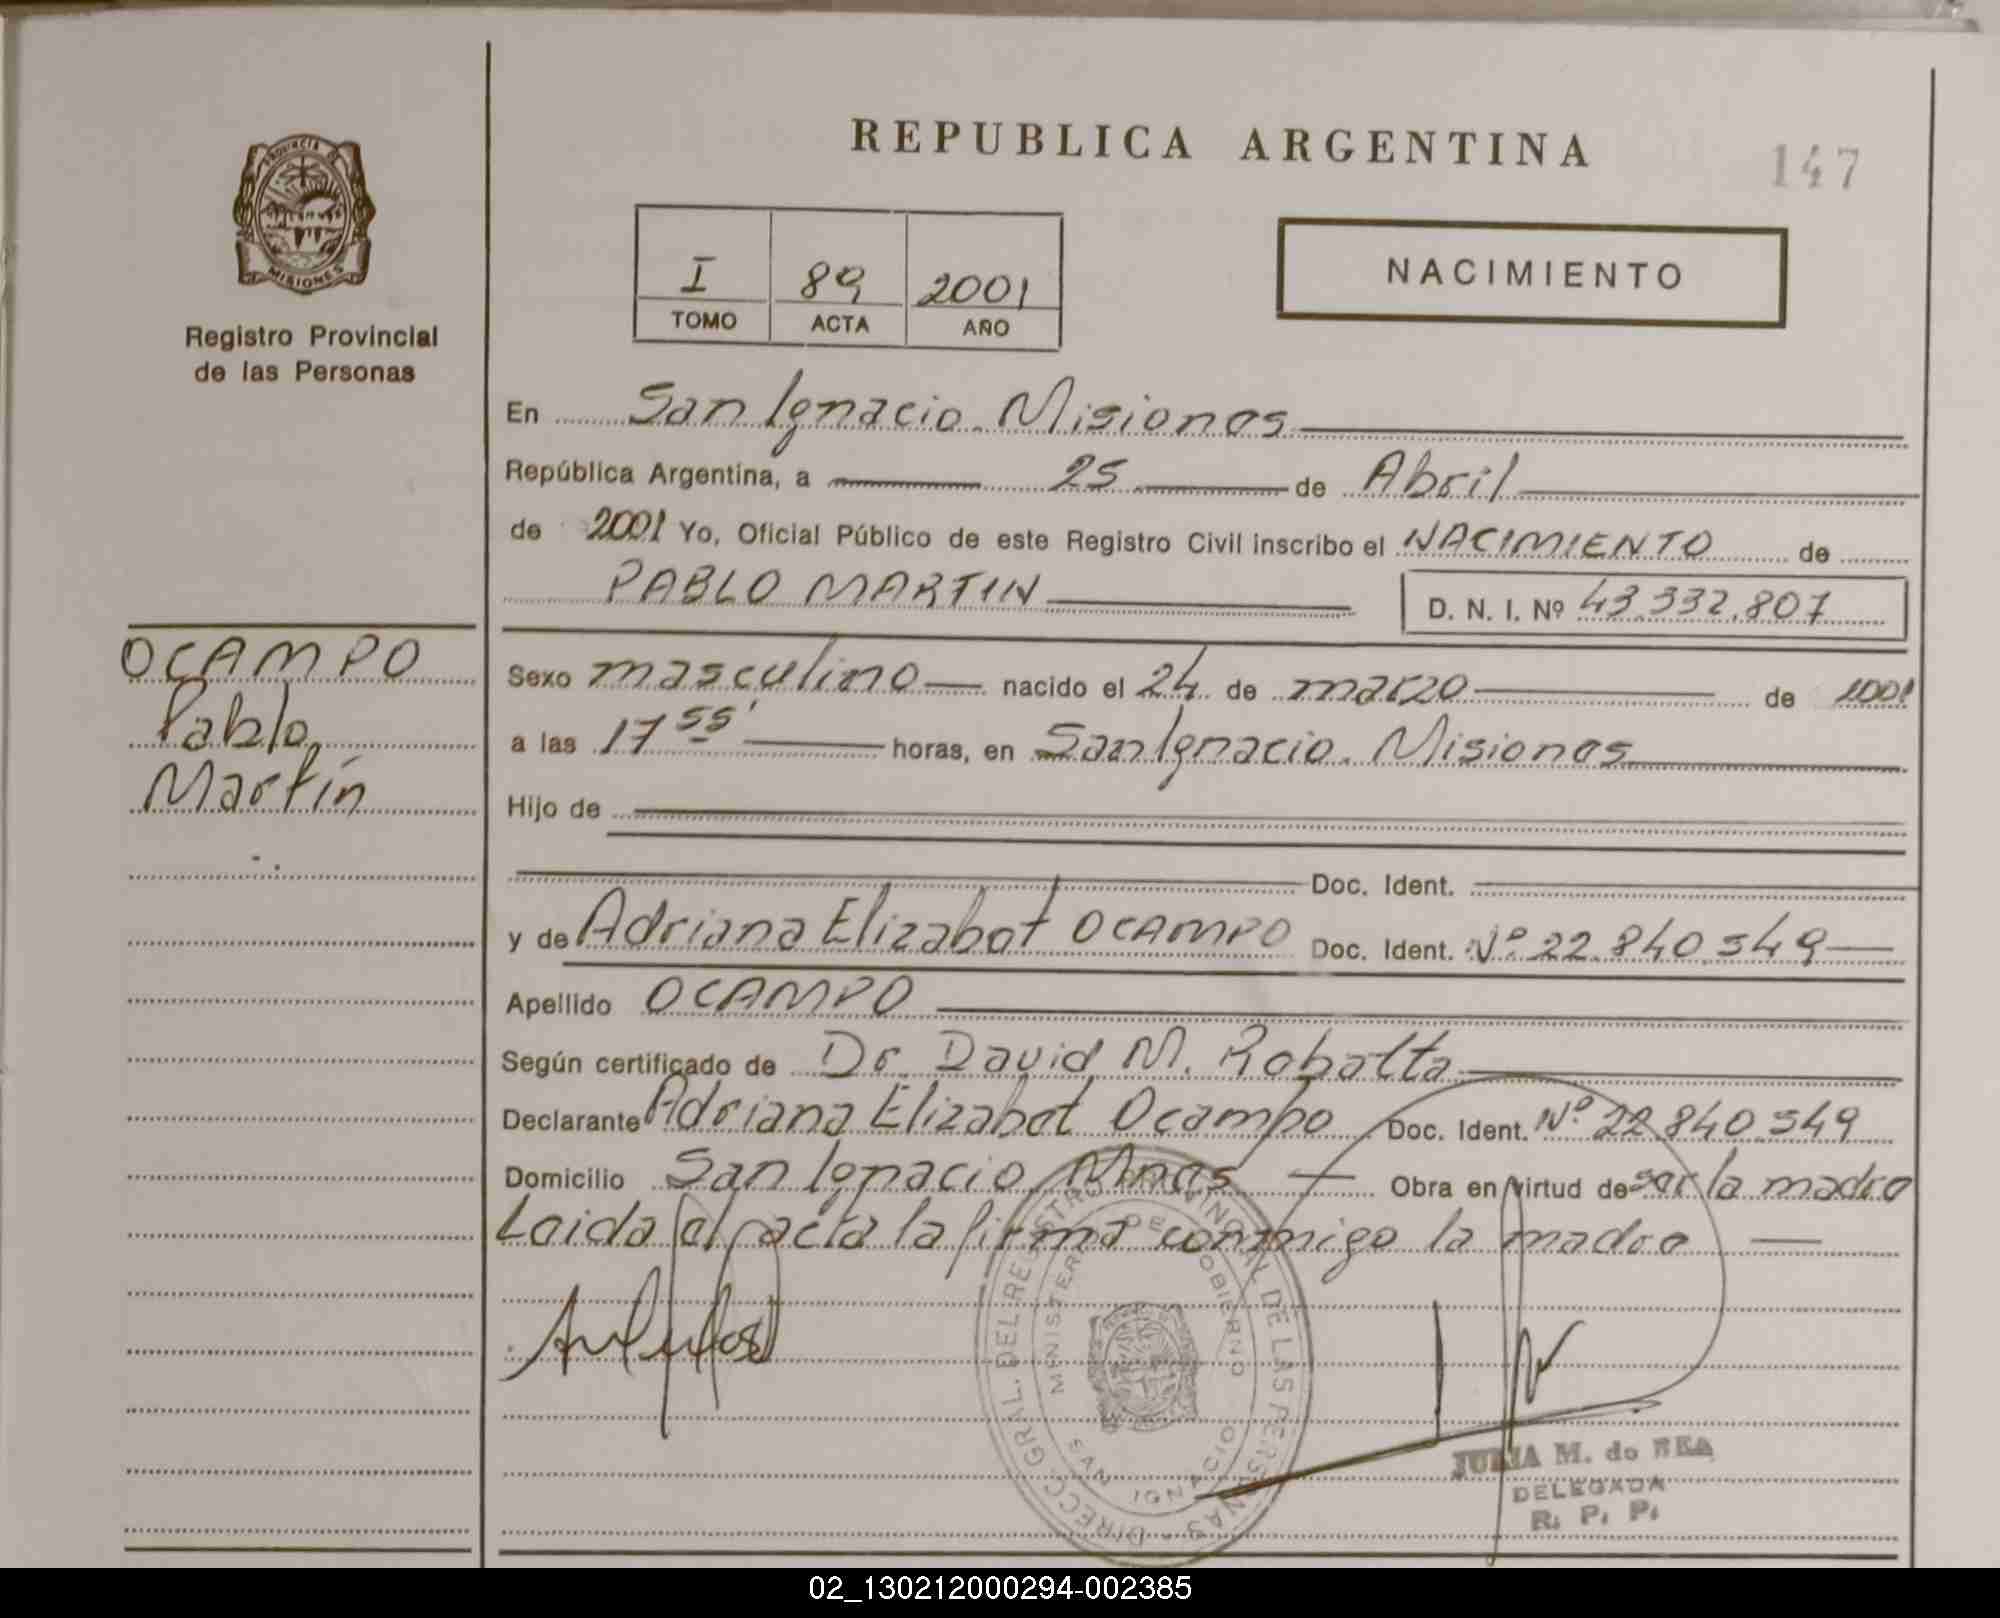 REPUBLICA ARGENTINA
147
PROVINCIA DE
MISIONES
Registro Provincial
de las Personas
I 89 2001
TOMO ACTA AÑO
NACIMIENTO
En San Ignacio. Misiones
República Argentina, a 25 de Abril
de 2001 Yo, Oficial Público de este Registro Civil inscribo el NACIMIENTO de
PABLO MARTIN
D. N. I. Nº 43.332.807
OCAMPO
Pablo
Martín
Sexo masculino nacido el 24 de marzo de 2001
a las 17 55' horas, en San Ignacio. Misiones
Hijo de
Doc. Ident.
y de Adriana Elizabet OCAMPO Doc. Ident. Nº 22.840.549
Apellido OCAMPO
Según certificado de Dr. David M. Robatta
Declarante Adriana Elizabet Ocampo Doc. Ident. Nº 22.840.549
Domicilio San Ignacio Mnes Obra en virtud de ser la madre
Leida el acta la firma conmigo la madre
DIRECC. GRAL. DEL REGISTRO PROVINCIAL DE LAS PERSONAS
MINISTERIO DE GOBIERNO
SAN IGNACIO
M. de REA
DELEGADA
R. P. P.
02_130212000294-002385